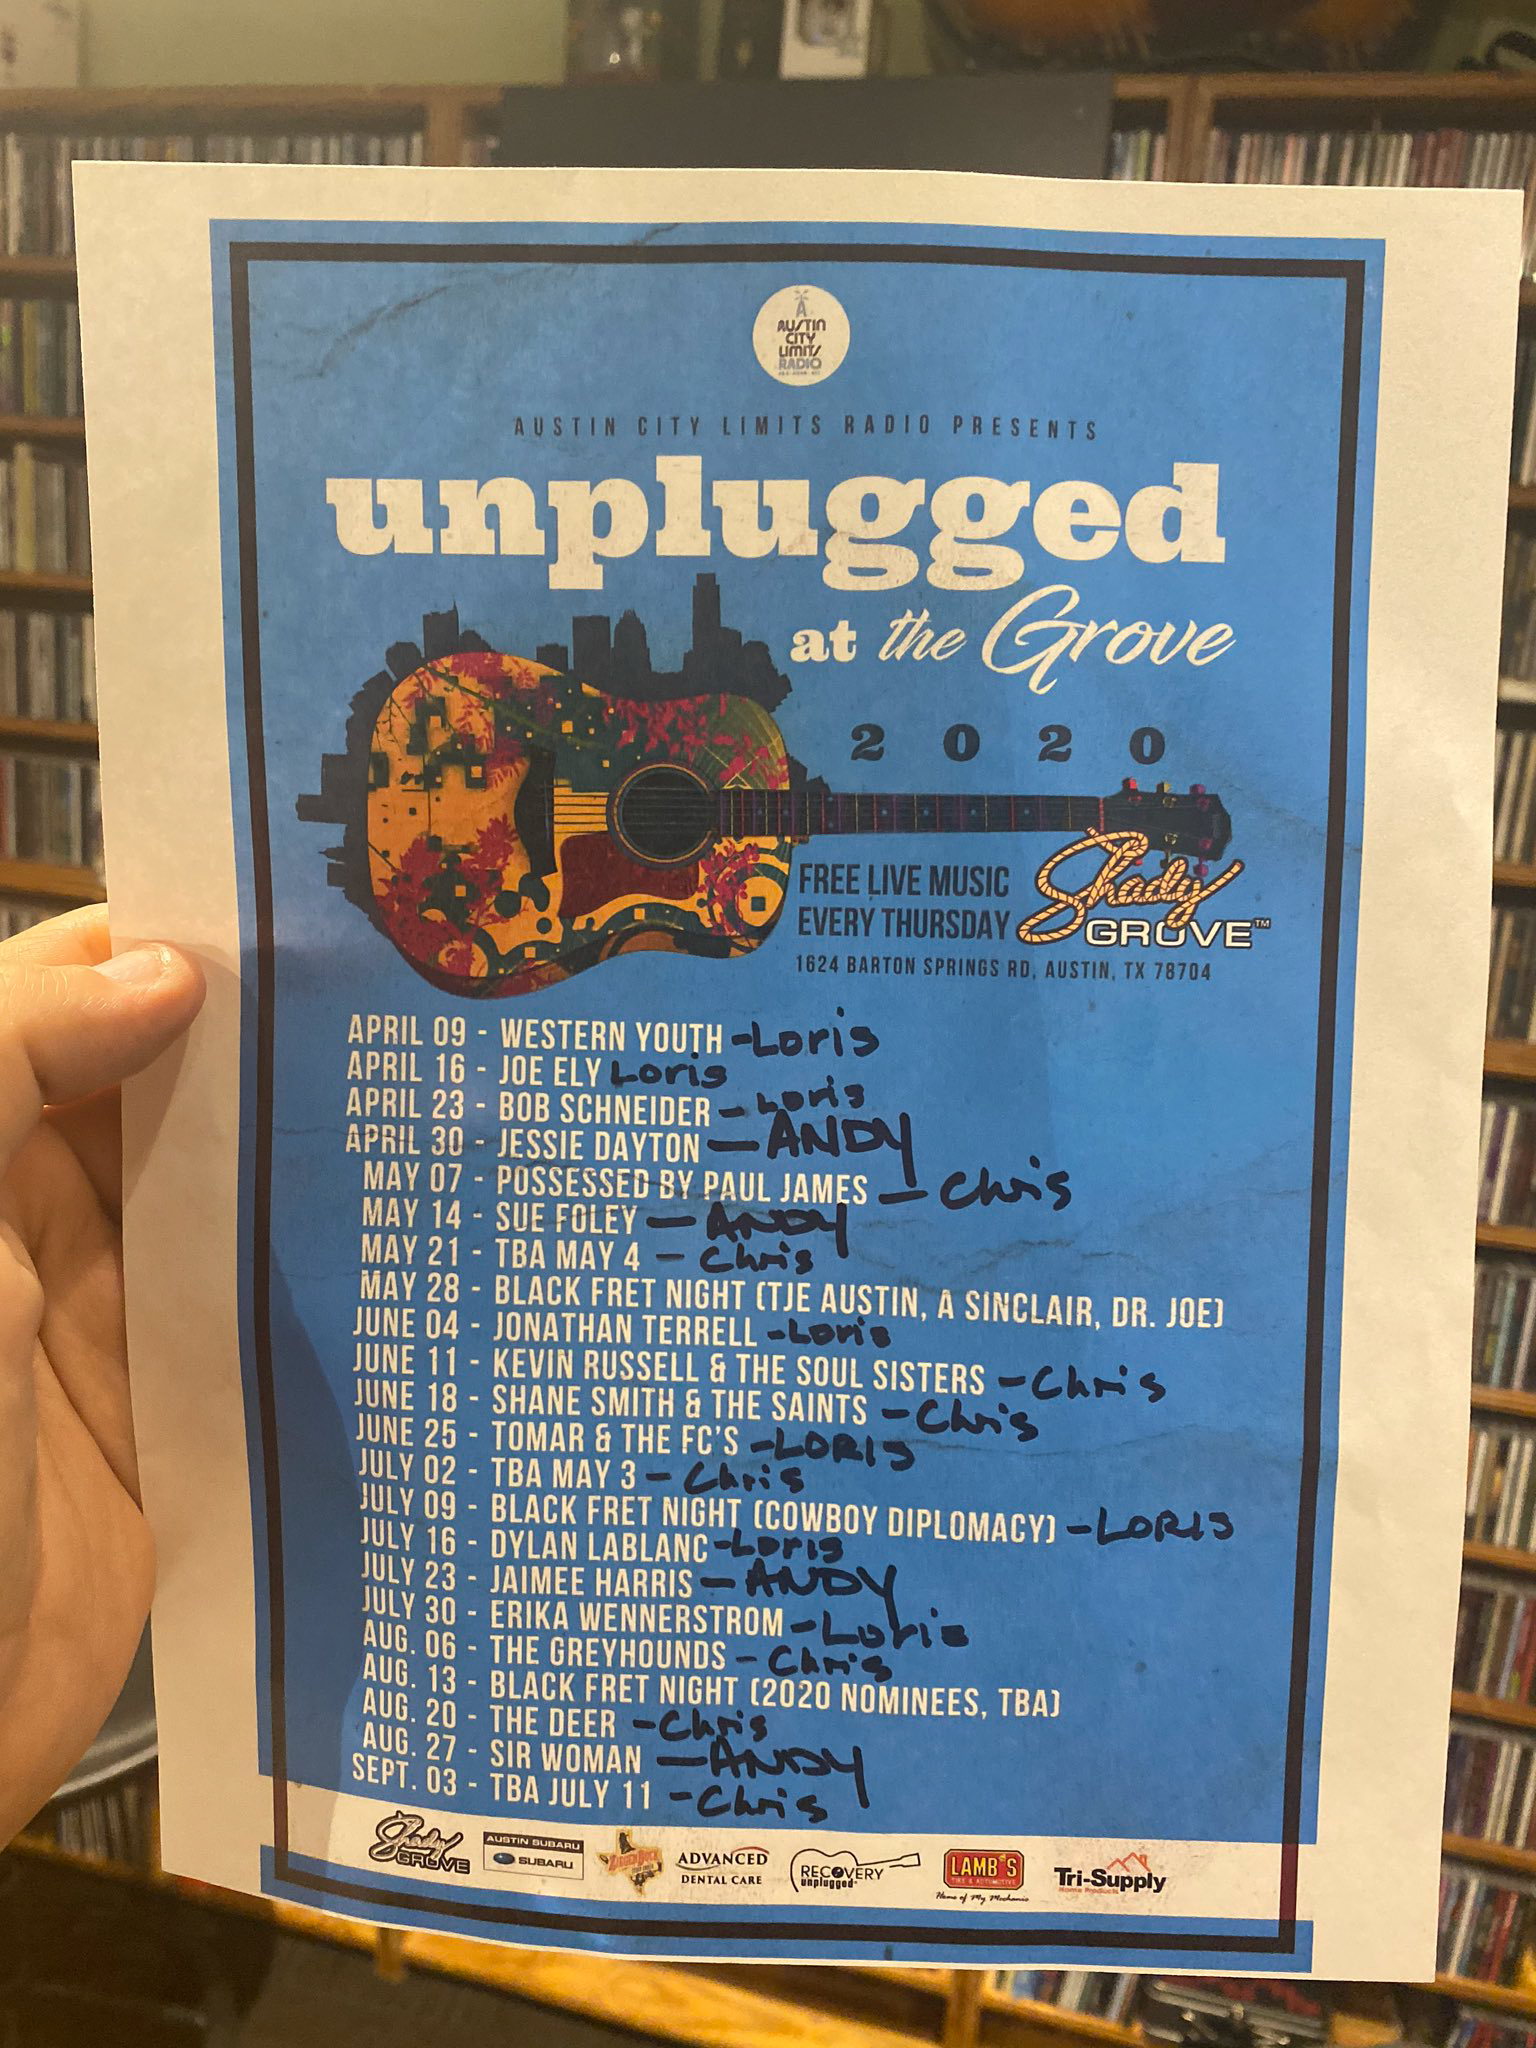 AUSTIN CITY LIMITS RADIO
AUSTIN CITY LIMITS RADIO PRESENTS
unplugged
at the Grove
2020
FREE LIVE MUSIC
EVERY THURSDAY
Shady GROVE™
1624 BARTON SPRINGS RD, AUSTIN, TX 78704
APRIL 09 - WESTERN YOUTH - Loris
APRIL 16 - JOE ELY Loris
APRIL 23 - BOB SCHNEIDER - Loris
APRIL 30 - JESSIE DAYTON - ANDY
MAY 07 - POSSESSED BY PAUL JAMES - Chris
MAY 14 - SUE FOLEY - ANDY
MAY 21 - TBA MAY 4 - Chris
MAY 28 - BLACK FRET NIGHT (TJE AUSTIN, A SINCLAIR, DR. JOE)
JUNE 04 - JONATHAN TERRELL - Loris
JUNE 11 - KEVIN RUSSELL & THE SOUL SISTERS - Chris
JUNE 18 - SHANE SMITH & THE SAINTS - Chris
JUNE 25 - TOMAR & THE FC'S - LORIS
JULY 02 - TBA MAY 3 - Chris
JULY 09 - BLACK FRET NIGHT (COWBOY DIPLOMACY) - LORIS
JULY 16 - DYLAN LABLANC - Loris
JULY 23 - JAIMEE HARRIS - ANDY
JULY 30 - ERIKA WENNERSTROM - Loris
AUG. 06 - THE GREYHOUNDS - Chris
AUG. 13 - BLACK FRET NIGHT (2020 NOMINEES, TBA)
AUG. 20 - THE DEER - Chris
AUG. 27 - SIR WOMAN - ANDY
SEPT. 03 - TBA JULY 11 - Chris
Shady GROVE
AUSTIN SUBARU
SUBARU
ZIEGENBOCK
ADVANCED
DENTAL CARE
RECOVERY
unplugged
LAMB'S
TIRE & AUTOMOTIVE
Home of My Mechanic
Tri-Supply
Home Products